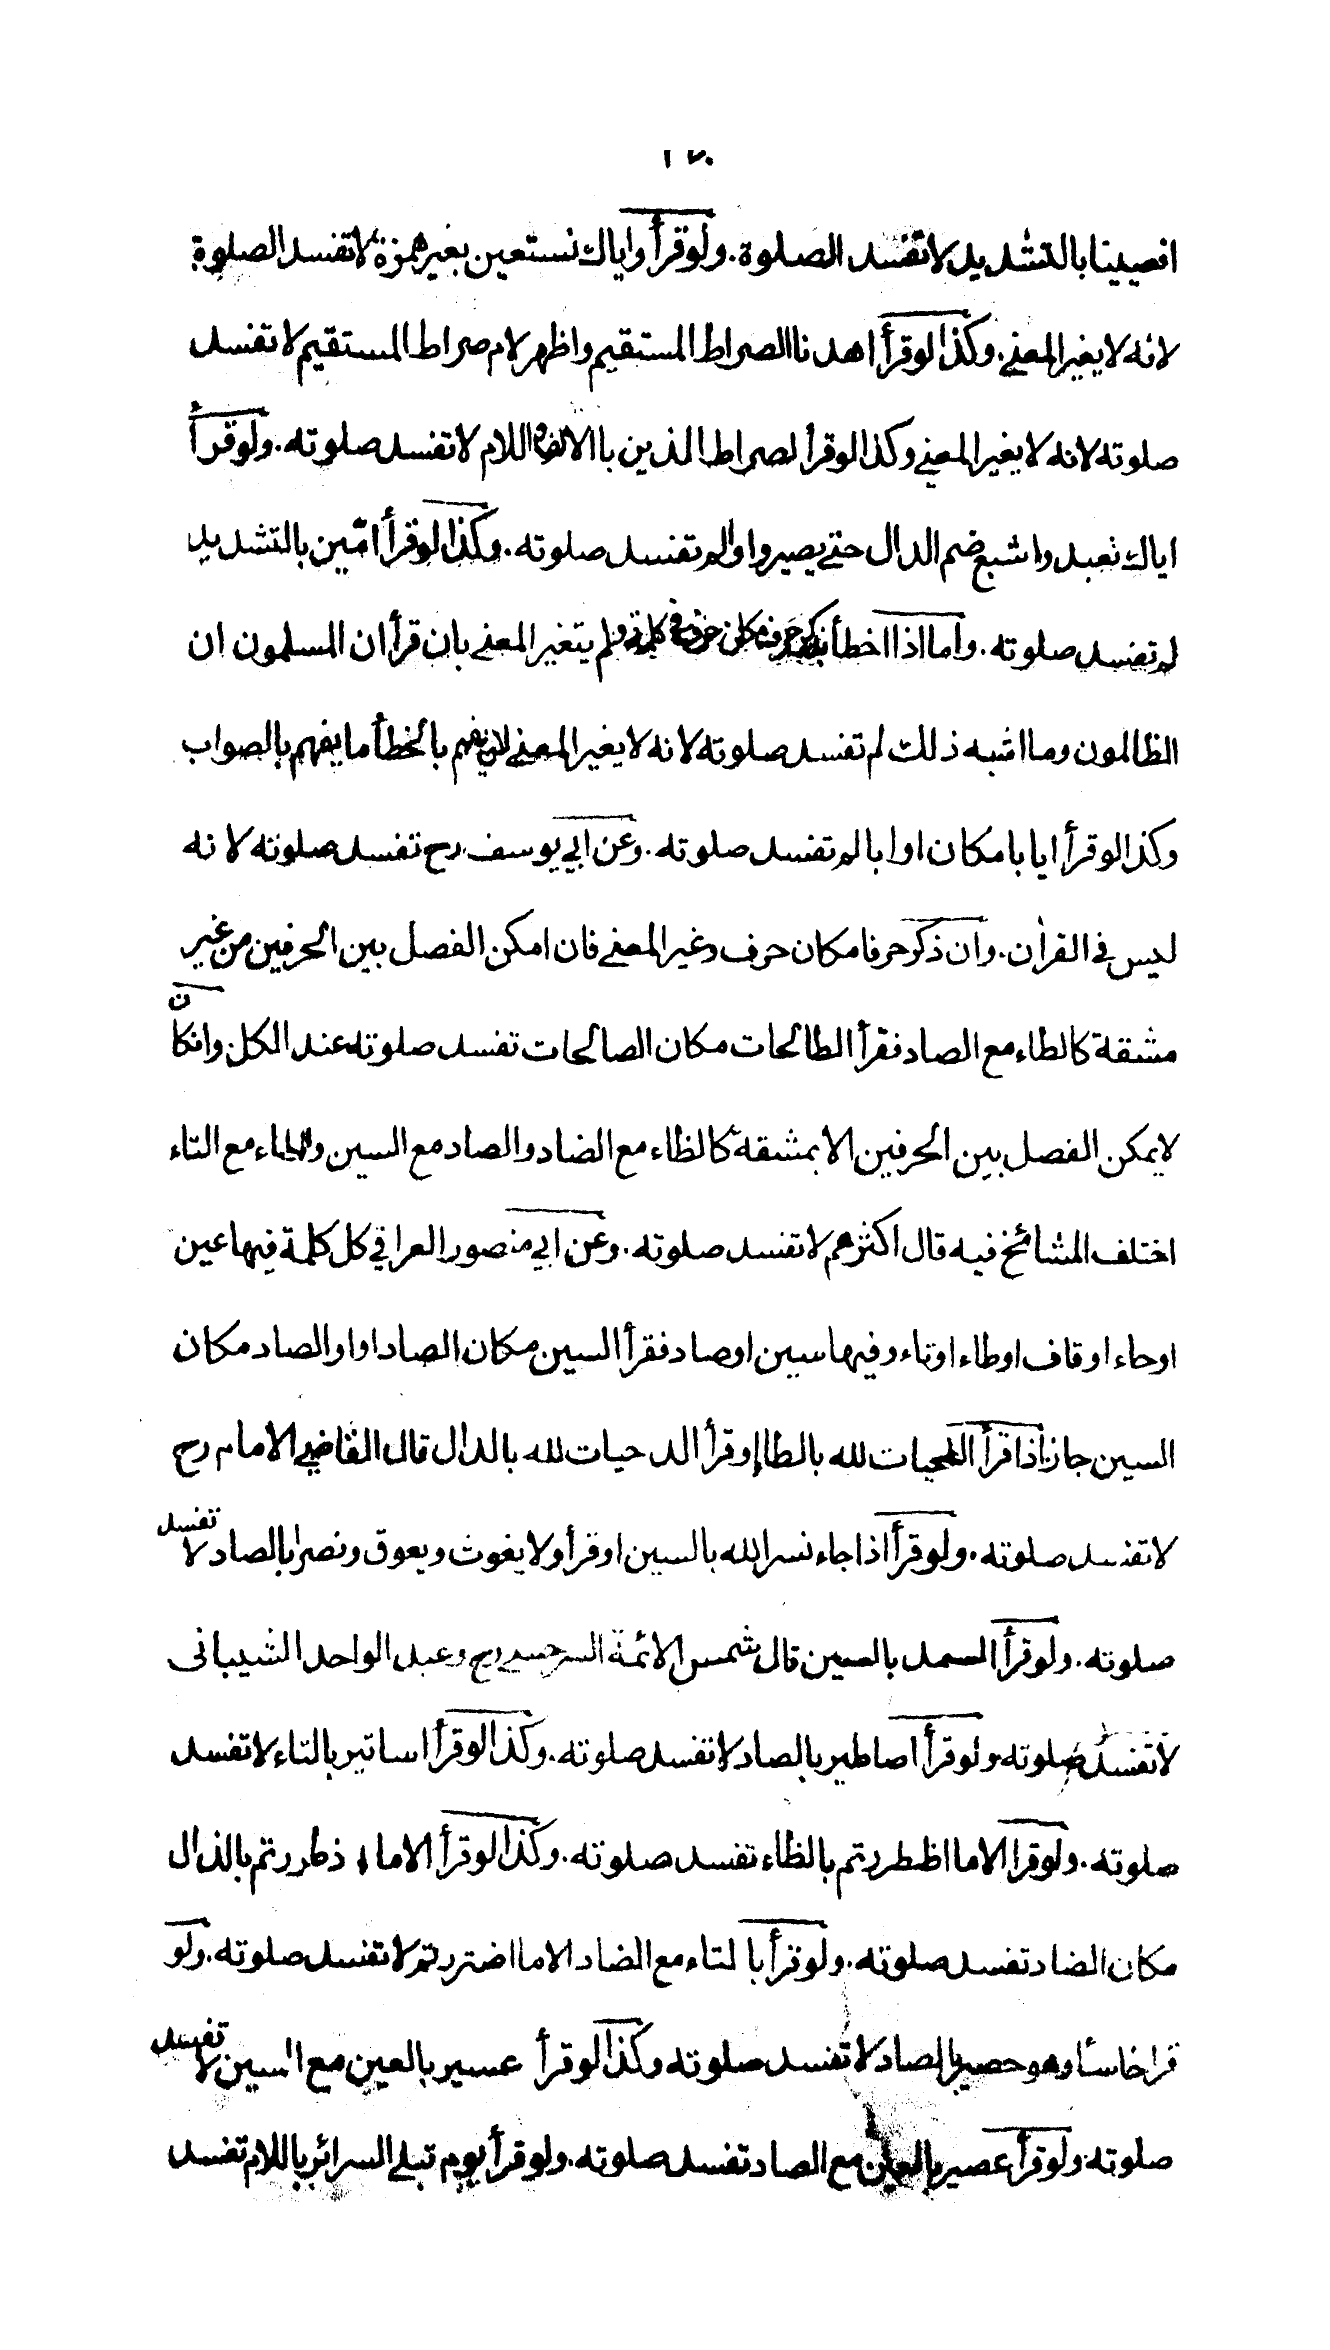 ١٧٠
افعيينا بالتشديد لا تفسد الصلوة. ولو قرأ واياك نستعين بغير همزة لا تفسد الصلوة
لانه لا يغير المعنى. وكذا لو قرأ اهدنا الصراط المستقيم واظهر لام صراط المستقيم لا تفسد
صلوته لانه لا يغير المعنى وكذا لو قرأ لصراط الذين با الالف واللام لا تفسد صلوته. ولو قرأ
اياك نعبد واشبع ضم الدال حتى يصير واوا لم تفسد صلوته. وكذا لو قرأ امّين بالتشديد
لم تفسد صلوته. واما اذا اخطأ بذكر حرف مكان حرف في كلمة ولم يتغير المعنى بان قرأ ان المسلمون ان
الظالمون وما اشبه ذلك لم تفسد صلوته لانه لا يغير المعنى لانه يفهم بالخطأ ما يفهم بالصواب
وكذا لو قرأ ايابا مكان اوابا لم تفسد صلوته. وعن ابي يوسف رح تفسد صلوته لانه
ليس في القرأن. وان ذكر حرفا مكان حرف وغير المعنى فان امكن الفصل بين الحرفين من غير
مشقة كالطاء مع الصاد فقرأ الطالحات مكان الصالحات تفسد صلوته عند الكل وانكان
لا يمكن الفصل بين الحرفين الا بمشقة كالظاء مع الضاد والصاد مع السين والطاء مع التاء
اختلف المشائخ فيه قال اكثرهم لا تفسد صلوته. وعن ابي منصور العراقي كل كلمة فيها عين
اوحاء اوقاف اوطاء اوتاء وفيها سين اوصاد فقرأ السين مكان الصاد اواو الصاد مكان
السين جاز اذا قرأ الطحيات لله بالطا اوقرأ الدحيات لله بالدال قال القاضي الامام رح
لا تفسد صلوته. ولو قرأ اذا جاء نسر الله بالسين اوقرأ ولا يغوث ويعوق ونصرا بالصاد لا تفسد
صلوته. ولو قرأ السمد بالسين قال شمس الائمة السرخسي رح وعبد الواحد الشيباني
لا تفسد صلوته ولو قرأ اصاطير بالصاد لا تفسد صلوته. وكذا لو قرأ اساتير بالتاء لا تفسد
صلوته. ولو قرا الاما اظطررتم بالظاء تفسد صلوته. وكذا لو قرأ الاما اذطررتم بالذال
مكان الضاد تفسد صلوته. ولو قرأ بالتاء مع الضاد الاما اضتررتم لا تفسد صلوته. ولو
قرا خاسئا وهو حصير بالصاد لا تفسد صلوته وكذا لو قرأ عسير بالعين مع السين لا تفسد
صلوته. ولو قرأ عصير بالعين مع الصاد تفسد صلوته. ولو قرأ يوم تبلى السرائر باللام تفسد